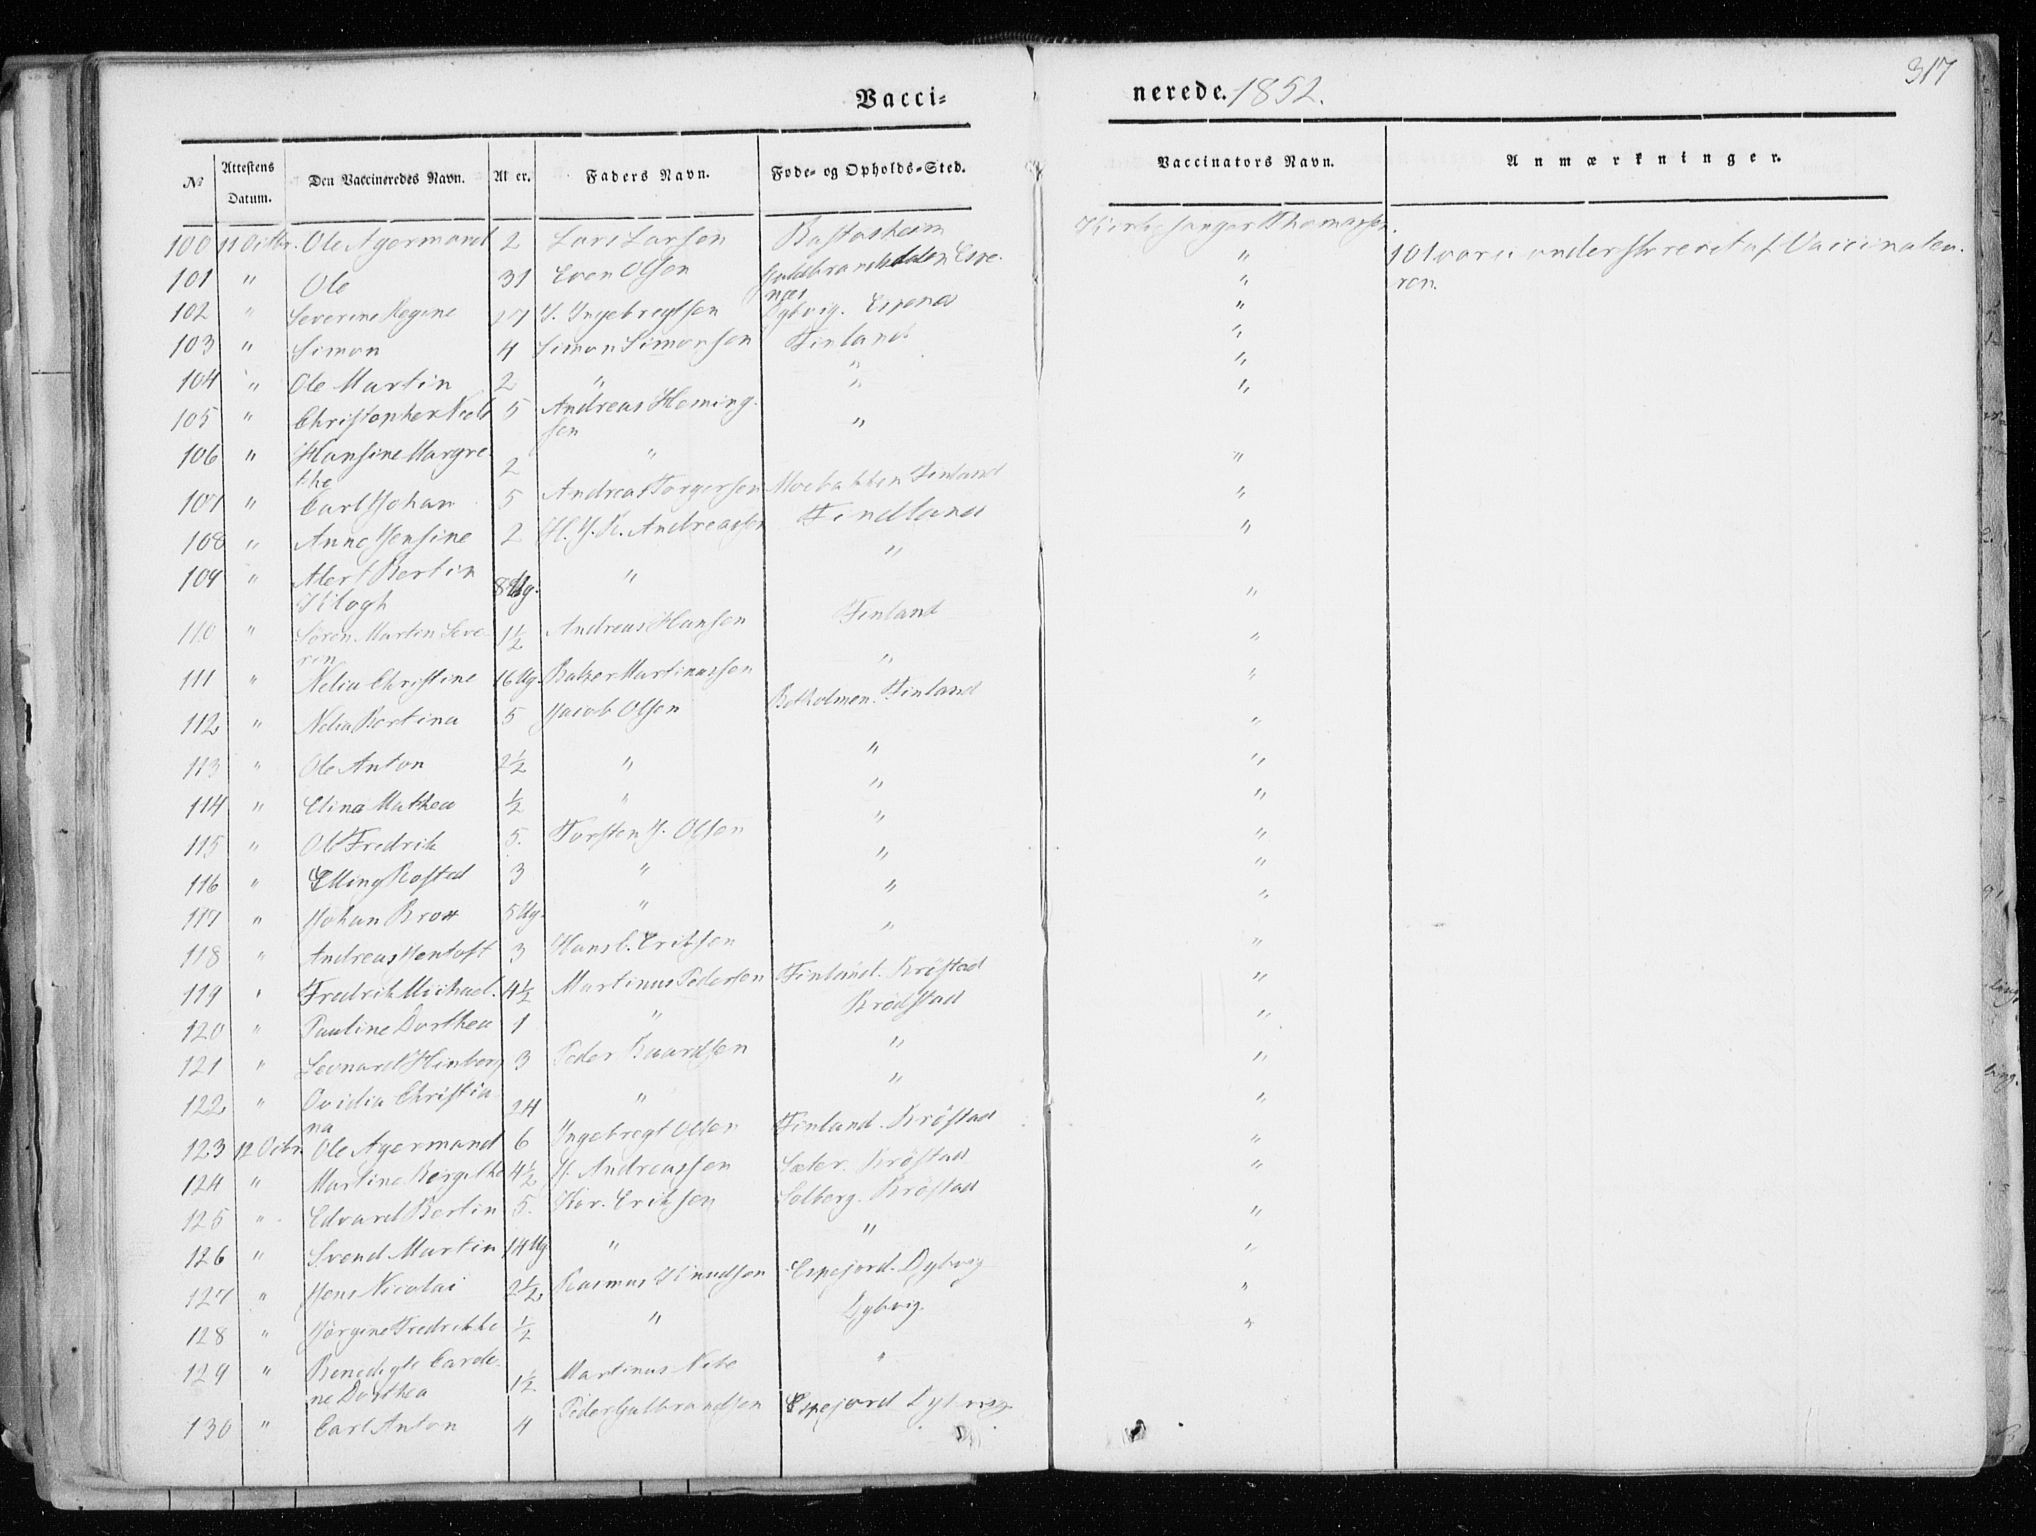 317
Vacci= nerede. 1852.
No Attestens Datum. Den Vaccineredes Navn. Al er. Faders Navn. Føde- og Opholds-Sted. Vaccinators Navn. Anmærkninger.
100 11 Octbr. Ole Agermand 2 Lars Larsen Bastasheim Kirkesanger Thomassen.
101 " Ole 31 Even Olsen Guldbrandsdalen Espe- " 101 var ei underskrevet af Vaccinateu-
næs ren.
102 " Severine Regine 27 J. Ingebregtsen Dybvig. Espenæs "
103 " Simon 4 Simon Simonsen Finland "
104 " Ole Martin 2 " " "
105 " Christopher Neels 5 Andreas Heming- " "
sen
106 " Hansine Margre- 2 " " "
the
107 " Carl Johan 5 Andreas Torgersen Moebakken Finland "
108 " Anne Jensine 2 H. J. K. Andreassen Findland "
109 " Alert Bertin 8 Ug. " " "
Klogh
110 " Søren Martin Seve- 1½ Andreas Hansen Finland "
rin
111 " Nelia Christine 16 Ug. Balzer Martinussen " "
112 " Nelia Bertina 5 Jacob Olsen Botholmen. Finland "
113 " Ole Anton 2½ " " "
114 " Elina Mathea ½ " " "
115 " Ole Fredrik 5. Torsten J. Olsen " "
116 " Elling Rosted 3 " " "
117 " Johan Brox 5 Ug. " " "
118 " Andreas Jentoft 3 Hans C. Eriksen " "
119 " Fredrik Michael. 4½ Martinus Pedersen Finland. Brøstad "
120 " Pauline Dorthea 1 " Brødstad "
121 " Leonard Hinberg 3 Peder Baardsen " "
122 " Ovidia Christia- 24 " " "
na
123 12 Octbr. Ole Agermand 6 Ingebregt Olsen Finland. Brøstad "
124 " Martine Bergithe 4½ J. Andreassen Sæter. Brøstad "
125 " Edvard Bertin 5. Hør. Eriksen Solberg. Brøstad "
126 " Svend Martin 14 Ug " " "
127 " Jens Nicolai 2½ Rasmus Knudsen Espejord. Dybvig "
128 " Jørgine Fredrikke ½ " Dybvig. "
129 " Benedigte Carde- 1½ Martinus Nebe "
ne Dorthea
130 " Carl Anton 4 Peder Gulbrandsen Espejord Dybvig.